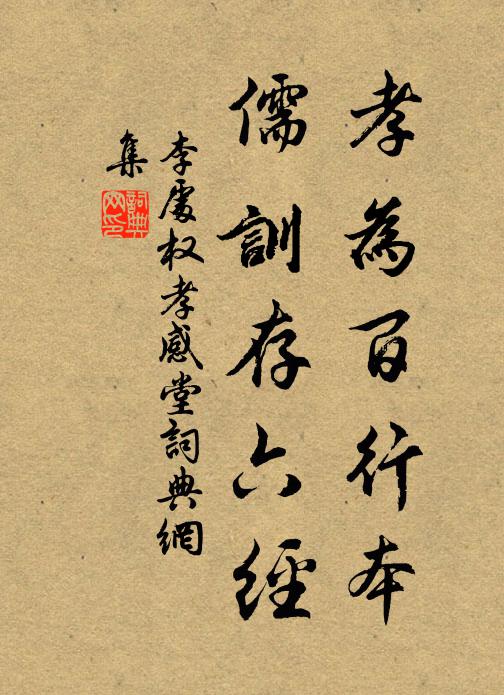 孝為百行本
儒訓存六經
李處权孝感堂詞典網
集
詞典網印